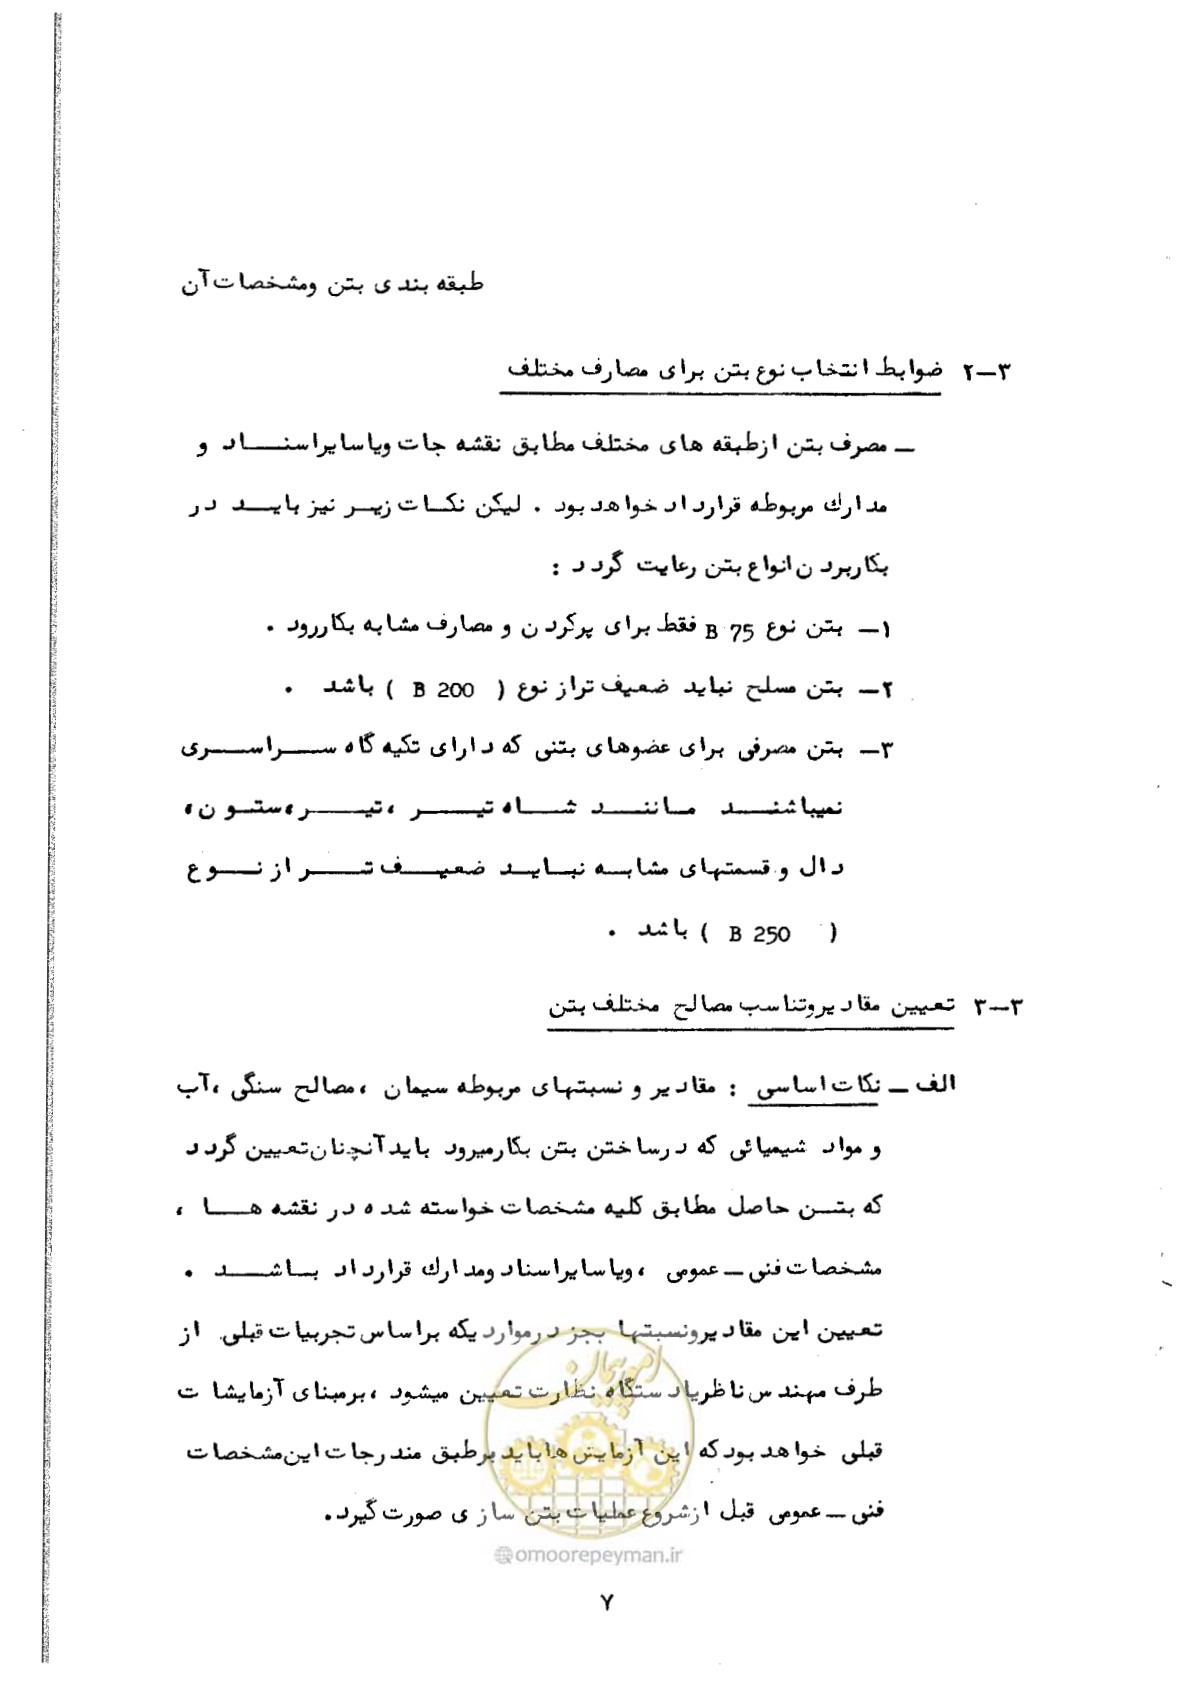 طبقه بندی بتن ومشخصات آن
۳–۲ ضوابط انتخاب نوع بتن برای مصارف مختلف
– مصرف بتن ازطبقه های مختلف مطابق نقشه جات ویاسایراسناد و
مدارك مربوطه قرارداد خواهد بود . لیکن نکات زیر نیز باید در
بکاربردن انواع بتن رعایت گردد :
۱– بتن نوع B 75 فقط برای پرکردن و مصارف مشابه بکاررود .
۲– بتن مسلح نباید ضعیف تراز نوع ( B 200 ) باشد .
۳– بتن مصرفی برای عضوهای بتنی که دارای تکیه گاه سراسری
نمیباشند مانند شاه تیر ،تیر،ستون،
دال و قسمتهای مشابه نباید ضعیف تر از نوع
( B 250 ) باشد .
۳–۳ تعیین مقادیروتناسب مصالح مختلف بتن
الف – نکات اساسی : مقادیر و نسبتهای مربوطه سیمان ،مصالح سنگی ،آب
و مواد شیمیائی که درساختن بتن بکارمیرود بایدآنچنان تعیین گردد
که بتن حاصل مطابق کلیه مشخصات خواسته شده در نقشه ها ،
مشخصات فنی – عمومی ،ویاسایراسناد ومدارك قرارداد باشد .
تعیین این مقادیرونسبتها بجز درمواردیکه براساس تجربیات قبلی از
طرف مهندس ناظریادستگاه نظارت تعیین میشود ،برمبنای آزمایشات
قبلی خواهد بودکه این آزمایش هاباید برطبق مندرجات این مشخصات
فنی – عمومی قبل ازشروع عملیات بتن سازی صورت گیرد.
امور پیمان
@omoorepeyman.ir
۷